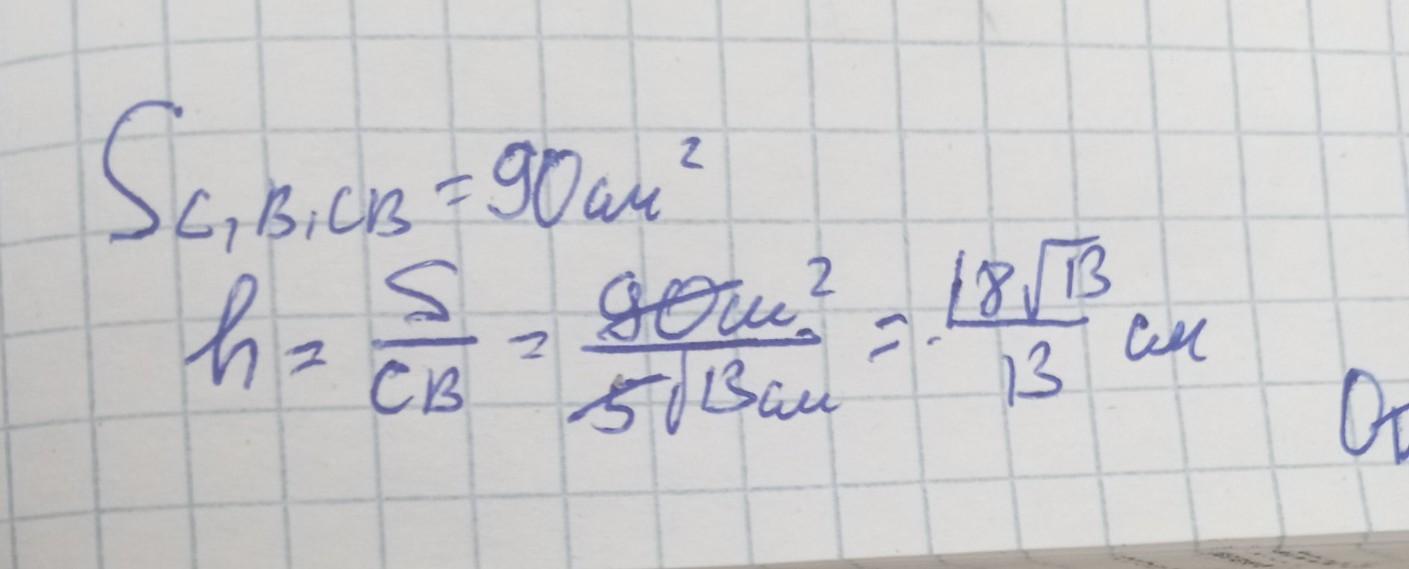 S C₁B₁CB = 90 см²
h = S/CB = 90 см²/5√13 см = 18√13/13 см
От